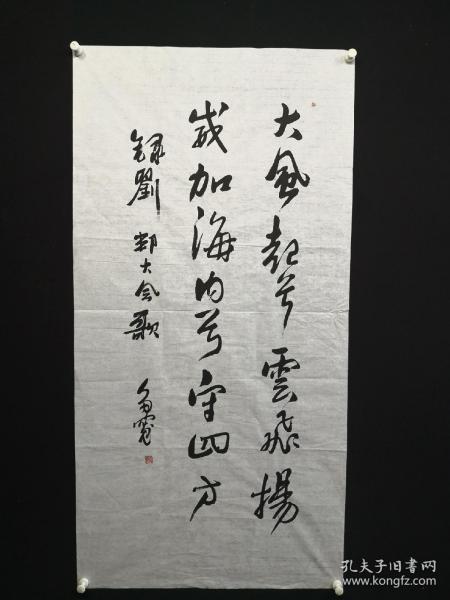 大風起兮雲飛揚
威加海内兮守四方
録劉邦大風歌
孔夫子旧书网
www.kongfz.com